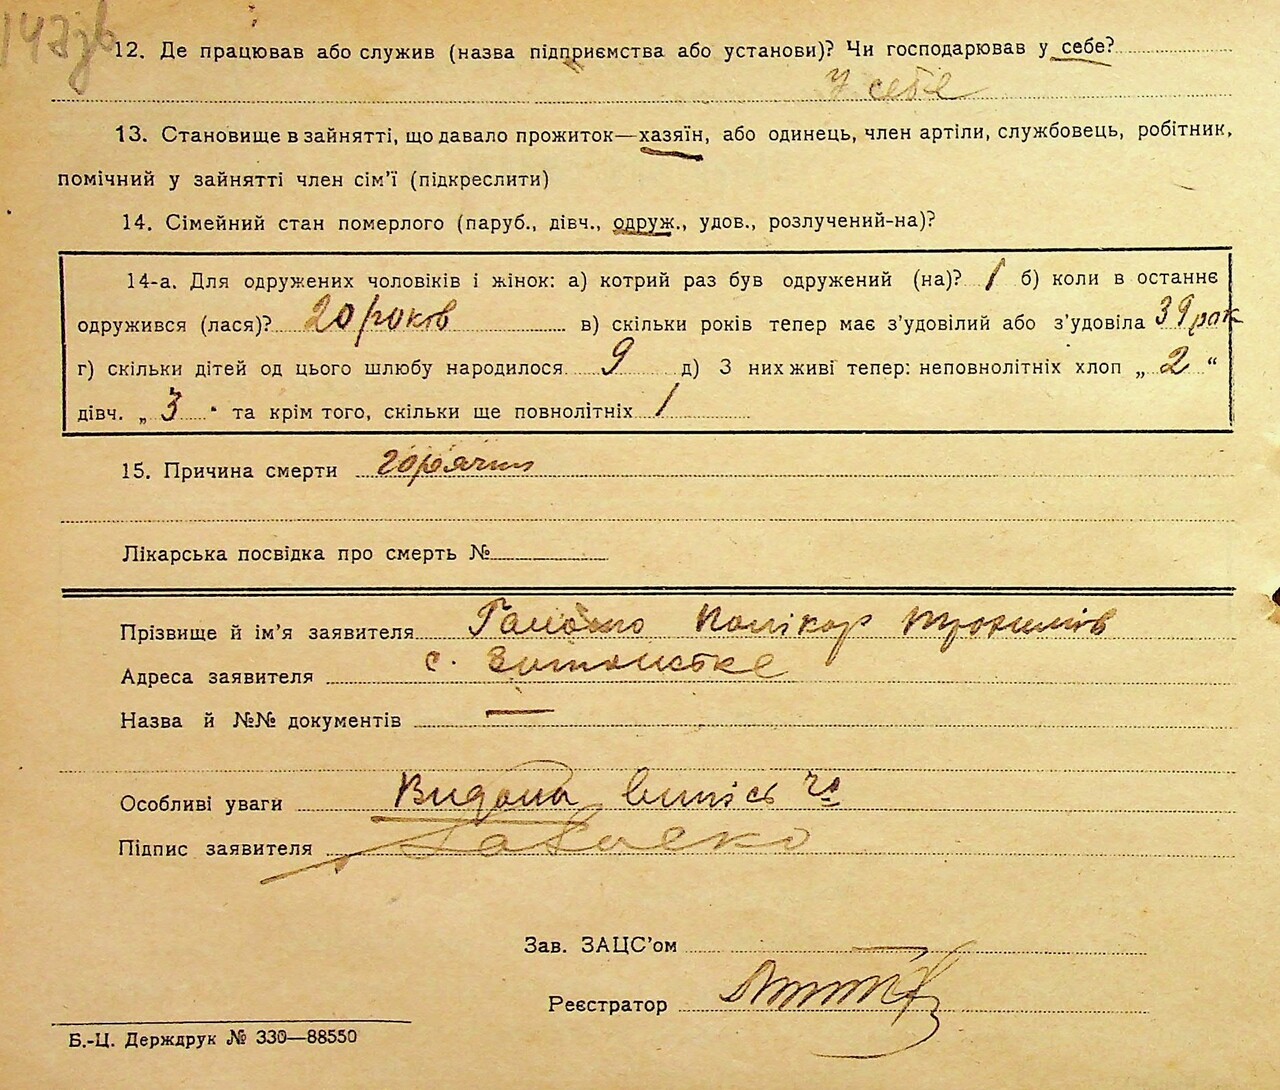 147зв
12. Де працював або служив (назва підприємства або установи)? Чи господарював у себе?
у себе
13. Становище в зайнятті, що давало прожиток—хазяїн, або одинець, член артіли, службовець, робітник,
помічний у зайнятті член сім'ї (підкреслити)
14. Сімейний стан померлого (паруб., дівч., одруж., удов., розлучений-на)?
14-а. Для одружених чоловіків і жінок: а) котрий раз був одружений (на)? 1 б) коли в останнє
одружився (лася)? 20 років в) скільки років тепер має з'удовілий або з'удовіла 39 рок
г) скільки дітей од цього шлюбу народилося 9 д) З них живі тепер: неповнолітніх хлоп „ 2 “
дівч. „ 3 " та крім того, скільки ще повнолітніх 1
15. Причина смерти
Лікарська посвідка про смерть №
Прізвище й ім'я заявителя Полікар
Адреса заявителя с.
Назва й №№ документів —
Особливі уваги Видана випись
Підпис заявителя
Зав. ЗАЦС'ом
Реєстратор
Б.-Ц. Держдрук № 330—88550